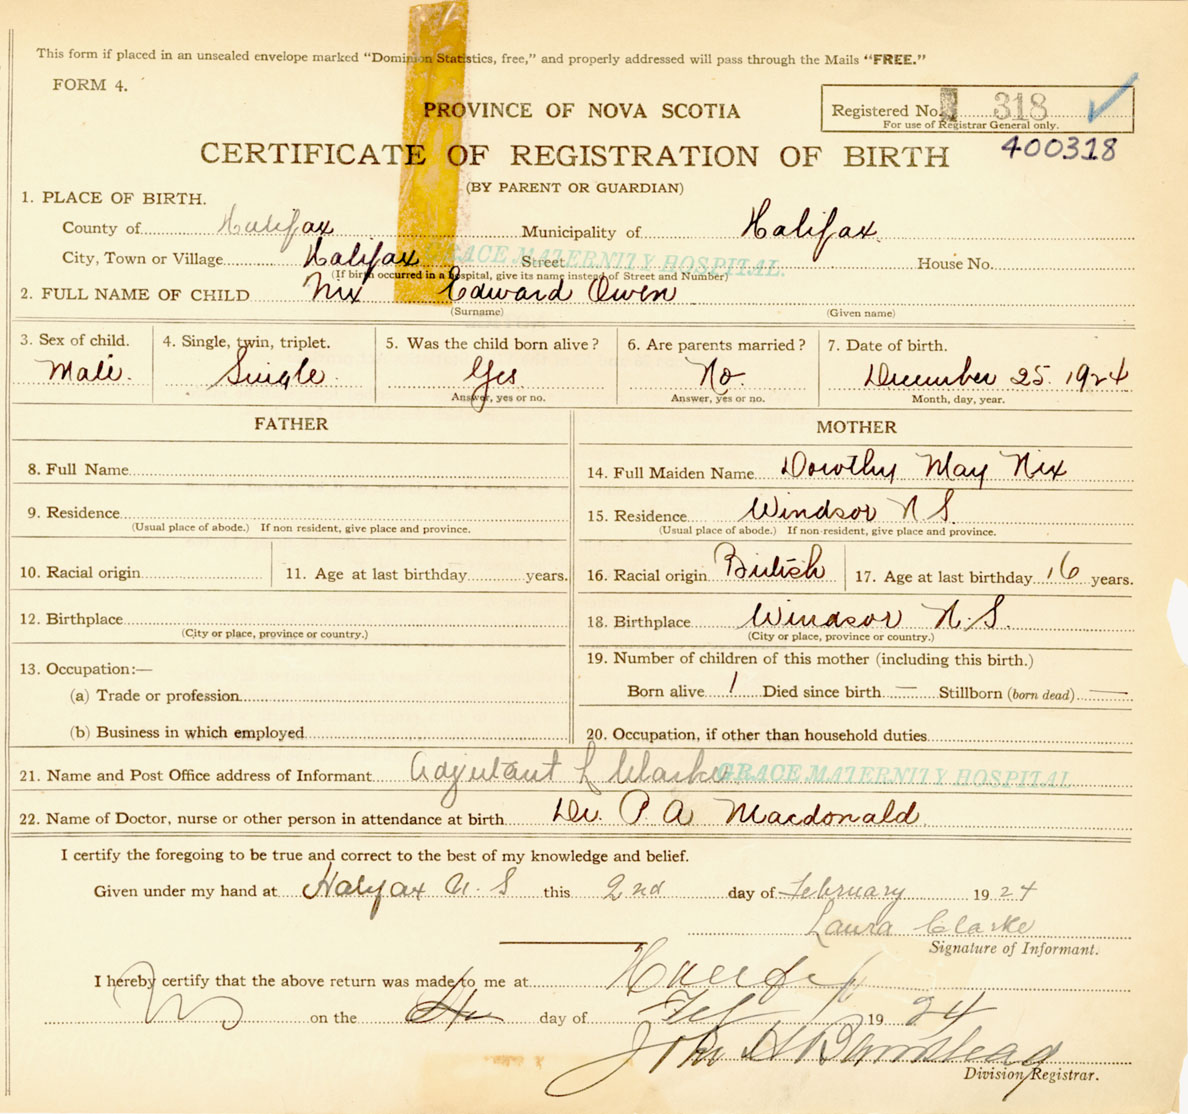 This form if placed in an unsealed envelope marked "Dominion Statistics, free," and properly addressed will pass through the Mails "FREE."
FORM 4.
PROVINCE OF NOVA SCOTIA
Registered No. 318
For use of Registrar General only.
CERTIFICATE OF REGISTRATION OF BIRTH
400318
(BY PARENT OR GUARDIAN)
1. PLACE OF BIRTH.
County of Halifax Municipality of Halifax.
City, Town or Village Halifax Street GRACE MATERNITY HOSPITAL. House No.
(If birth occurred in a hospital, give its name instead of Street and Number)
2. FULL NAME OF CHILD Nix Edward Owen
(Surname) (Given name)
3. Sex of child. 4. Single, twin, triplet. 5. Was the child born alive? 6. Are parents married? 7. Date of birth.
Male. Single. Yes No. December 25. 1924
Answer, yes or no. Answer, yes or no. Month, day, year.
FATHER MOTHER
8. Full Name 14. Full Maiden Name Dorothy May Nix
9. Residence 15. Residence Windsor N S.
(Usual place of abode.) If non resident, give place and province. (Usual place of abode.) If non-resident, give place and province.
10. Racial origin 11. Age at last birthday years. 16. Racial origin British 17. Age at last birthday 16 years.
12. Birthplace 18. Birthplace Windsor N.S.
(City or place, province or country.) (City or place, province or country.)
13. Occupation:— 19. Number of children of this mother (including this birth.)
(a) Trade or profession Born alive 1 Died since birth — Stillborn (born dead) —
(b) Business in which employed 20. Occupation, if other than household duties
21. Name and Post Office address of Informant Adjutant L Clarke GRACE MATERNITY HOSPITAL
22. Name of Doctor, nurse or other person in attendance at birth Dr. P. A Macdonald.
I certify the foregoing to be true and correct to the best of my knowledge and belief.
Given under my hand at Halifax N. S this 2nd day of February 1924
Laura Clarke
Signature of Informant.
I hereby certify that the above return was made to me at Halifax
on the day of Feb 1924
John A Barnstead
Division Registrar.